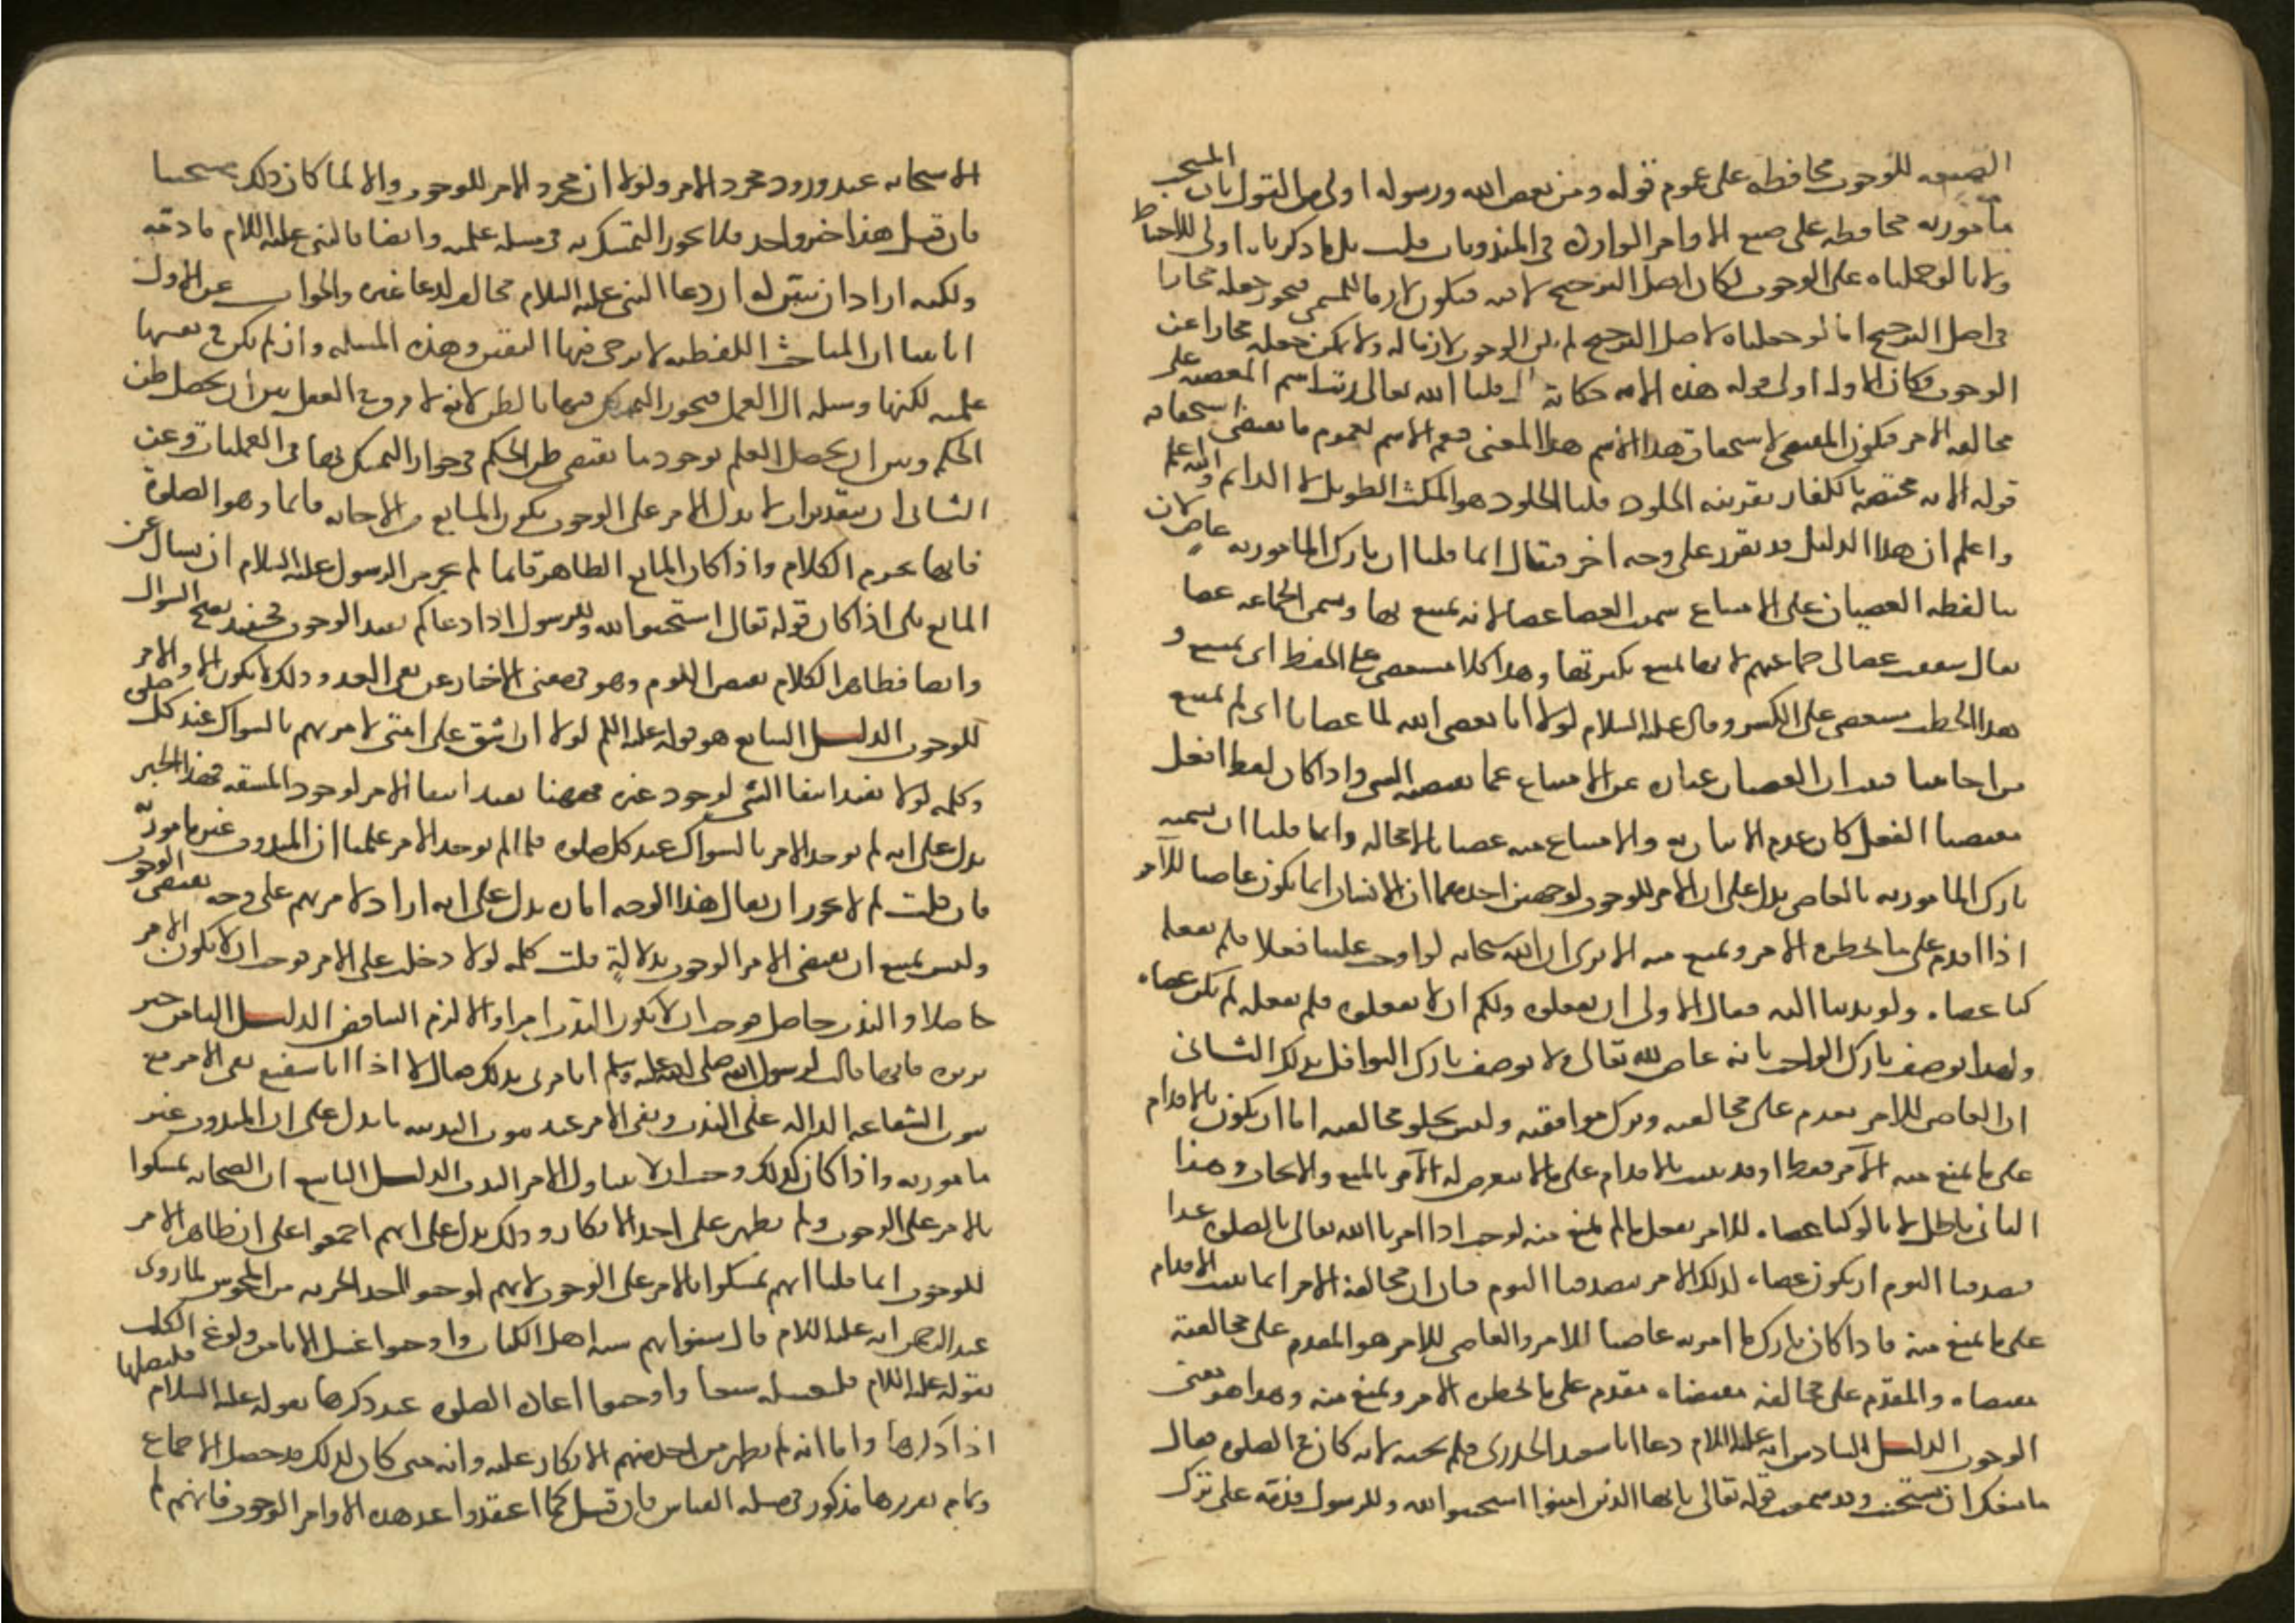 الصيغه للوجوب محافظه على عموم قوله ومن يعص الله ورسوله اولى من القول بان المستحب
مامور به محافظه على صيغ الاوامر الوارده في المندوبات قلت بل ما ذكرناه اولى للاحتياط
ولانا لو حملناه على الوجوب لكان اصل الترجيح لا فيه فيكون لازما للمسمى فيجوز جعله مجازا
في اصل الترجيح اما لو جعلناه لاصل الترجيح لم يكن الوجوب لازما له ولا يمكن جعله مجازا عن
الوجوب فكان الاول اولى قوله هذه الايه حكاية حال قلنا الله تعالى رتب اسم المعصيه على
مخالفه الامر فيكون المقتضى لاستحقاق هذا الاسم هذا المعنى فيعم الاسم لعموم ما يقتضى استحقاقه
قوله الايه مختصه بالكفار بقرينه الخلود قلنا الخلود هو المكث الطويل لا الدائم والله اعلم
واعلم ان هذا الدليل قد يقرر على وجه اخر فيقال انما قلنا ان تارك المامور به عاص لان
بنا لفظه العصيان على الامتناع سميت العصا عصا لانه يمتنع بها وسمى الجماعه عصا
يقال شققت عصا جماعتهم لانها تمتنع بكثرتها وهذا كلام مستعص على الحفظ اى يمتنع و
هذا الحطب مستعص على الكسر وقال عليه السلام لولا انا نعصى الله لما عصانا اى لم يمتنع
من اجابتنا فبان ان العصيان عباره عن الامتناع عما يقتضيه الشى واذا كان لفظ افعل
مقتضيا الفعل كان عدم الاتيان به والامتناع منه عصيانا لا محاله وانما قلنا ان تسميه
تارك المامور به بالعاصى يدل على ان الامر للوجوب لوجهين احدهما ان الانسان انما يكون عاصيا للآمر
اذا اقدم على ما يحظره الامر ويمنع منه الا ترى ان الله سبحانه لو اوجب علينا فعلا فلم نفعله
كنا عصاه ولو ندبنا اليه فقال الاولى ان تفعلوه ولكم ان لا تفعلوه فلم نفعله لم نكن عصاه
ولهذا يوصف تارك الواجب بانه عاص لله تعالى ولا يوصف تارك النوافل بذلك الثانى
ان العاصى للامر يقدم على مخالفته وترك موافقته وليس تخلو مخالفته اما ان يكون بالاقدام
على ما يمنع منه الآمر فقط او قد يثبت بالاقدام على ما لا يتعرض له الآمر بالمنع والايجاب وهذا
الثانى باطل لانا لو كنا عصاه للامر بفعل ما لم يمنع منه لوجب اذا امرنا الله تعالى بالصلوه غدا
فتصدقنا اليوم ان نكون عصاه لذلك الامر بتصدقنا اليوم فبان ان مخالفة الامر انما تثبت بالاقدام
على ما يمنع منه فاذا كان تارك ما امر به عاصيا للامر والعاصى للامر هو المقدم على مخالفة
مقتضاه والمقدم على مخالفة مقتضاه مقدم على ما يحظره الامر ويمنع منه وهذا هو معنى
الوجوب الدليل السادس انه عليه السلام دعا ابا سعيد الخدرى فلم يجبه لانه كان فى الصلوه فقال
ما منعك ان تستجيب وقد سمعت قوله تعالى يا ايها الذين امنوا استجيبوا لله وللرسول فذمه على ترك
الاستجابه عند ورود مجرد الامر ولولا ان مجرد الامر للوجوب والا لما كان ذلك
فان قيل هذا خبر واحد فلا يجوز التمسك به فى مسله علميه وايضا فالنبى عليه السلام ما ذمه
ولكنه اراد ان يتبين له ان دعا النبى عليه السلام مخالف لدعا غيره والجواب عن الاول
انا بينا ان المباحث اللفظيه لا يرجى فيها اليقين وهذه المسله وان لم تكن فى نفسها
عمليه لكنها وسيله الى العمل فيجوز التمسك فيها بالظن لانه لا فرق فى العقل بين ان يحصل ظن
الحكم وبين ان يحصل العلم بوجود ما يقتضى ظن الحكم فى جواز التمسك بها فى العمليات وعن
الثانى ان بتقدير ان لا يدل الامر على الوجوب يكون المانع من الاجابه قائما وهو الصلوة
فانها تحرم الكلام واذا كان المانع الظاهر قائما لم يجز من الرسول عليه السلام ان يسال عن
المانع بلى اذا كان قوله تعالى استجيبوا لله وللرسول اذا دعاكم يفيد الوجوب فحينئذ يصح السؤال
وايضا فظاهر الكلام يقتضى اللوم وهو فى معنى الاخبار عن نفى العذر وذلك لا يكون الا والامر
للوجوب الدليل السابع هو قوله عليه السلم لولا ان اشق على امتى لامرتهم بالسواك عند كل صلوه
وكلمه لولا تفيد انتفا الشى لوجود غيره فههنا يفيد انتفا الامر لوجود المشقه فهذا الخبر
يدل على انه لم يوجد الامر بالسواك عند كل صلوه فلما لم يوجد الامر علمنا ان المندوب غير مامور به
فان قلت لم لا يجوز ان يقال هذا الوجه امارة يدل على انه اراد لامرتهم على وجه يقتضى الوجوب
وليس يمتنع ان يقتضى الامر الوجوب بدلالة قلت كلمه لولا دخلت على الامر فوجب ان لا يكون الامر
حاصلا والندب حاصل فوجب ان لا يكون الندب امرا والا لزم التناقض الدليل الثامن خبر
بريره فانها قالت لرسول الله صلى الله عليه وسلم اتامرنى بذلك فقال لا انما انا شافع نفى الامر مع
ثبوت الشفاعه الداله على الندب ونفى الامر عند ثبوت الندبيه يدل على ان المندوب غير
مامور به واذا كان كذلك وجب ان لا يتناول الامر الندب الدليل التاسع ان الصحابه تمسكوا
بالامر على الوجوب ولم يظهر على احد الانكار وذلك يدل على انهم اجمعوا على ان ظاهر الامر
للوجوب انما قلنا انهم تمسكوا بالامر على الوجوب لانهم اوجبوا اخذ الجزيه من المجوس لما روى
عبد الرحمن انه عليه السلام قال سنوا بهم سنه اهل الكتاب واوجبوا غسل الانا من ولوغ الكلب
بقوله عليه السلام فليغسله سبعا واوجبوا اعاده الصلوه عند ذكرها بقوله عليه السلام فليصلها
اذا ذكرها واما انه لم يظهر من احد منهم الانكار عليه وانه متى كان كذلك فقد حصل الاجماع
وتمام تقريرها مذكور فى مسله القياس فان قيل كما اعتقدوا عند هذه الاوامر الوجوب فانهم لم